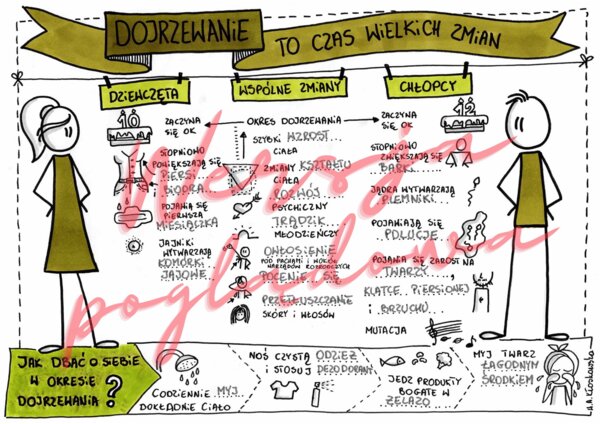 DOJRZEWANIE TO CZAS WIELKICH ZMIAN
DZIEWCZĘTA
10
ZACZYNA
SIĘ OK.
STOPNIOWO
POWIĘKSZAJĄ SIĘ
PIERSI
BIODRA
POJAWIA SIĘ
PIERWSZA
MIESIĄCZKA
JAJNIKI
WYTWARZAJĄ
KOMÓRKI
JAJOWE
WSPÓLNE ZMIANY
OKRES DOJRZEWANIA
SZYBKI WZROST
CIAŁA
ZMIANY KSZTAŁTU
CIAŁA
ROZWÓJ
PSYCHICZNY
TRĄDZIK
MŁODZIEŃCZY
OWŁOSIENIE
POD PACHAMI I WOKÓŁ
NARZĄDÓW ROZRODCZYCH
POCENIE SIĘ
PRZETŁUSZCZANIE
SKÓRY I WŁOSÓW
CHŁOPCY
12
ZACZYNA
SIĘ OK.
STOPNIOWO
ZWIĘKSZAJĄ SIĘ
BARKI
JĄDRA WYTWARZAJĄ
PLEMNIKI
POJAWIAJĄ SIĘ
POLUCJE
POJAWIA SIĘ ZAROST NA
TWARZY
KLATCE PIERSIOWEJ
I BRZUCHU
MUTACJA
Wersja
poglądowa
JAK DBAĆ O SIEBIE
W OKRESIE
DOJRZEWANIA?
CODZIENNIE MYJ
DOKŁADNIE CIAŁO
NOŚ CZYSTĄ ODZIEŻ
I STOSUJ DEZODORANT
JEDZ PRODUKTY
BOGATE W
ŻELAZO
MYJ TWARZ
ŁAGODNYM
ŚRODKIEM